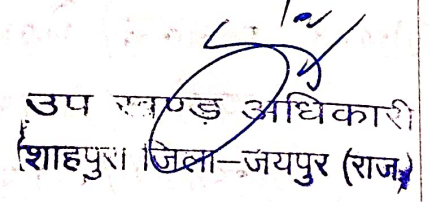 उप खण्ड अधिकारी
(शाहपुरा जिला–जयपुर (राज.)